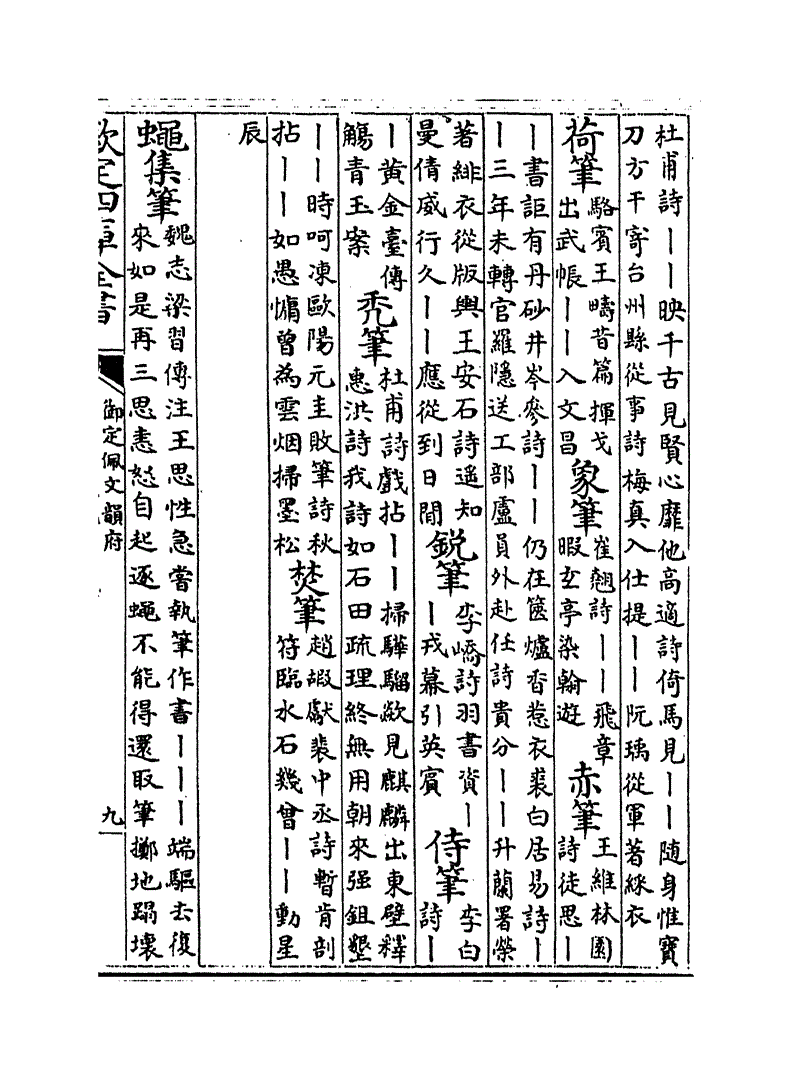 杜甫詩——映千古見賢心靡他高適詩倚馬見——随身惟寳
刀方干寄台州縣從事詩梅真入仕提——阮瑀從軍著綵衣
荷筆
駱賓王疇昔篇揮戈
出武帳——入文昌
象筆
崔翹詩——飛章
暇玄亭染翰遊
赤筆
王維林園
詩徒思—
—書詎有丹砂井岑參詩——仍在篋爐香惹衣裘白居易詩—
—三年未轉官羅隠送工部盧員外赴任詩貴分——升蘭署榮
著緋衣從版輿王安石詩遥知
曼倩威行久——應從到日間
鋭筆
李嶠詩羽書資—
—戎幕引英賓
侍筆
李白
詩—
—黄金臺傳
觴青玉案
秃筆
杜甫詩戲拈——掃驊騮歘見麒麟出東壁釋
惠洪詩我詩如石田疏理終無用朝來强鉏墾
——時呵凍歐陽元圭敗筆詩秋
拈——如愚慵曾為雲烟掃墨松
焚筆
趙嘏獻裴中丞詩暫肯剖
符臨水石幾曾——動星
辰
蠅集筆
魏志梁習傳注王思性急嘗執筆作書———端驅去復
來如是再三思恚怒自起逐蠅不能得還取筆擲地蹋壞
欽定四庫全書
御定佩文韻府
九